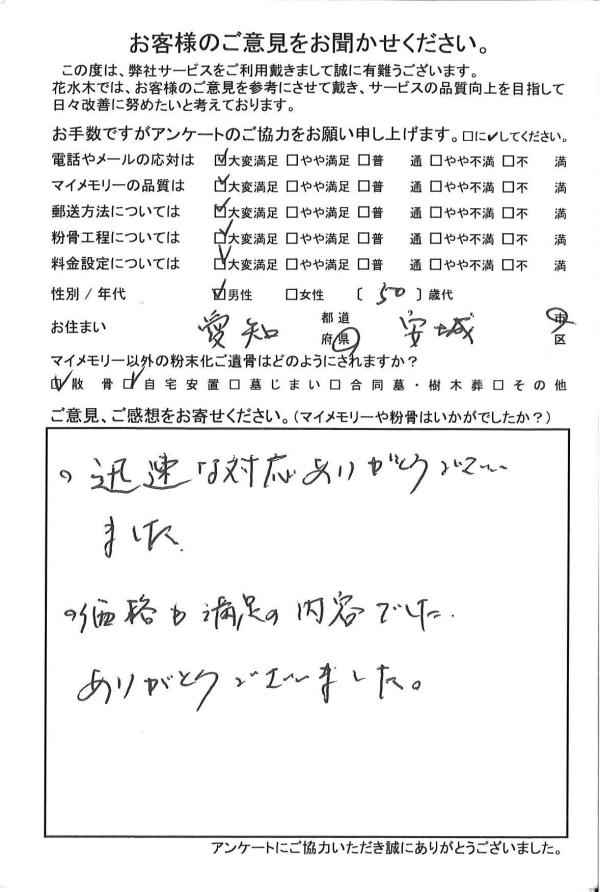 お客様のご意見をお聞かせください。
この度は、弊社サービスをご利用戴きまして誠に有難うございます。
花水木では、お客様のご意見を参考にさせて戴き、サービスの品質向上を目指して
日々改善に努めたいと考えております。
お手数ですがアンケートのご協力をお願い申し上げます。□に✓してください。
電話やメールの応対は ☑大変満足 □やや満足 □普　通 □やや不満 □不　満
マイメモリーの品質は ☑大変満足 □やや満足 □普　通 □やや不満 □不　満
郵送方法については ☑大変満足 □やや満足 □普　通 □やや不満 □不　満
粉骨工程については ☑大変満足 □やや満足 □普　通 □やや不満 □不　満
料金設定については ☑大変満足 □やや満足 □普　通 □やや不満 □不　満
性別 / 年代 ☑男性 □女性 〔 50 〕歳代
お住まい 愛知 都道府県 安城 市区
マイメモリー以外の粉末化ご遺骨はどのようにされますか？
☑散骨 ☑自宅安置 □墓じまい □合同墓・樹木葬 □その他
ご意見、ご感想をお寄せください。(マイメモリーや粉骨はいかがでしたか？)
○迅速な対応ありがとうござい
ました。
○価格も満足の内容でした。
ありがとうございました。
アンケートにご協力いただき誠にありがとうございました。